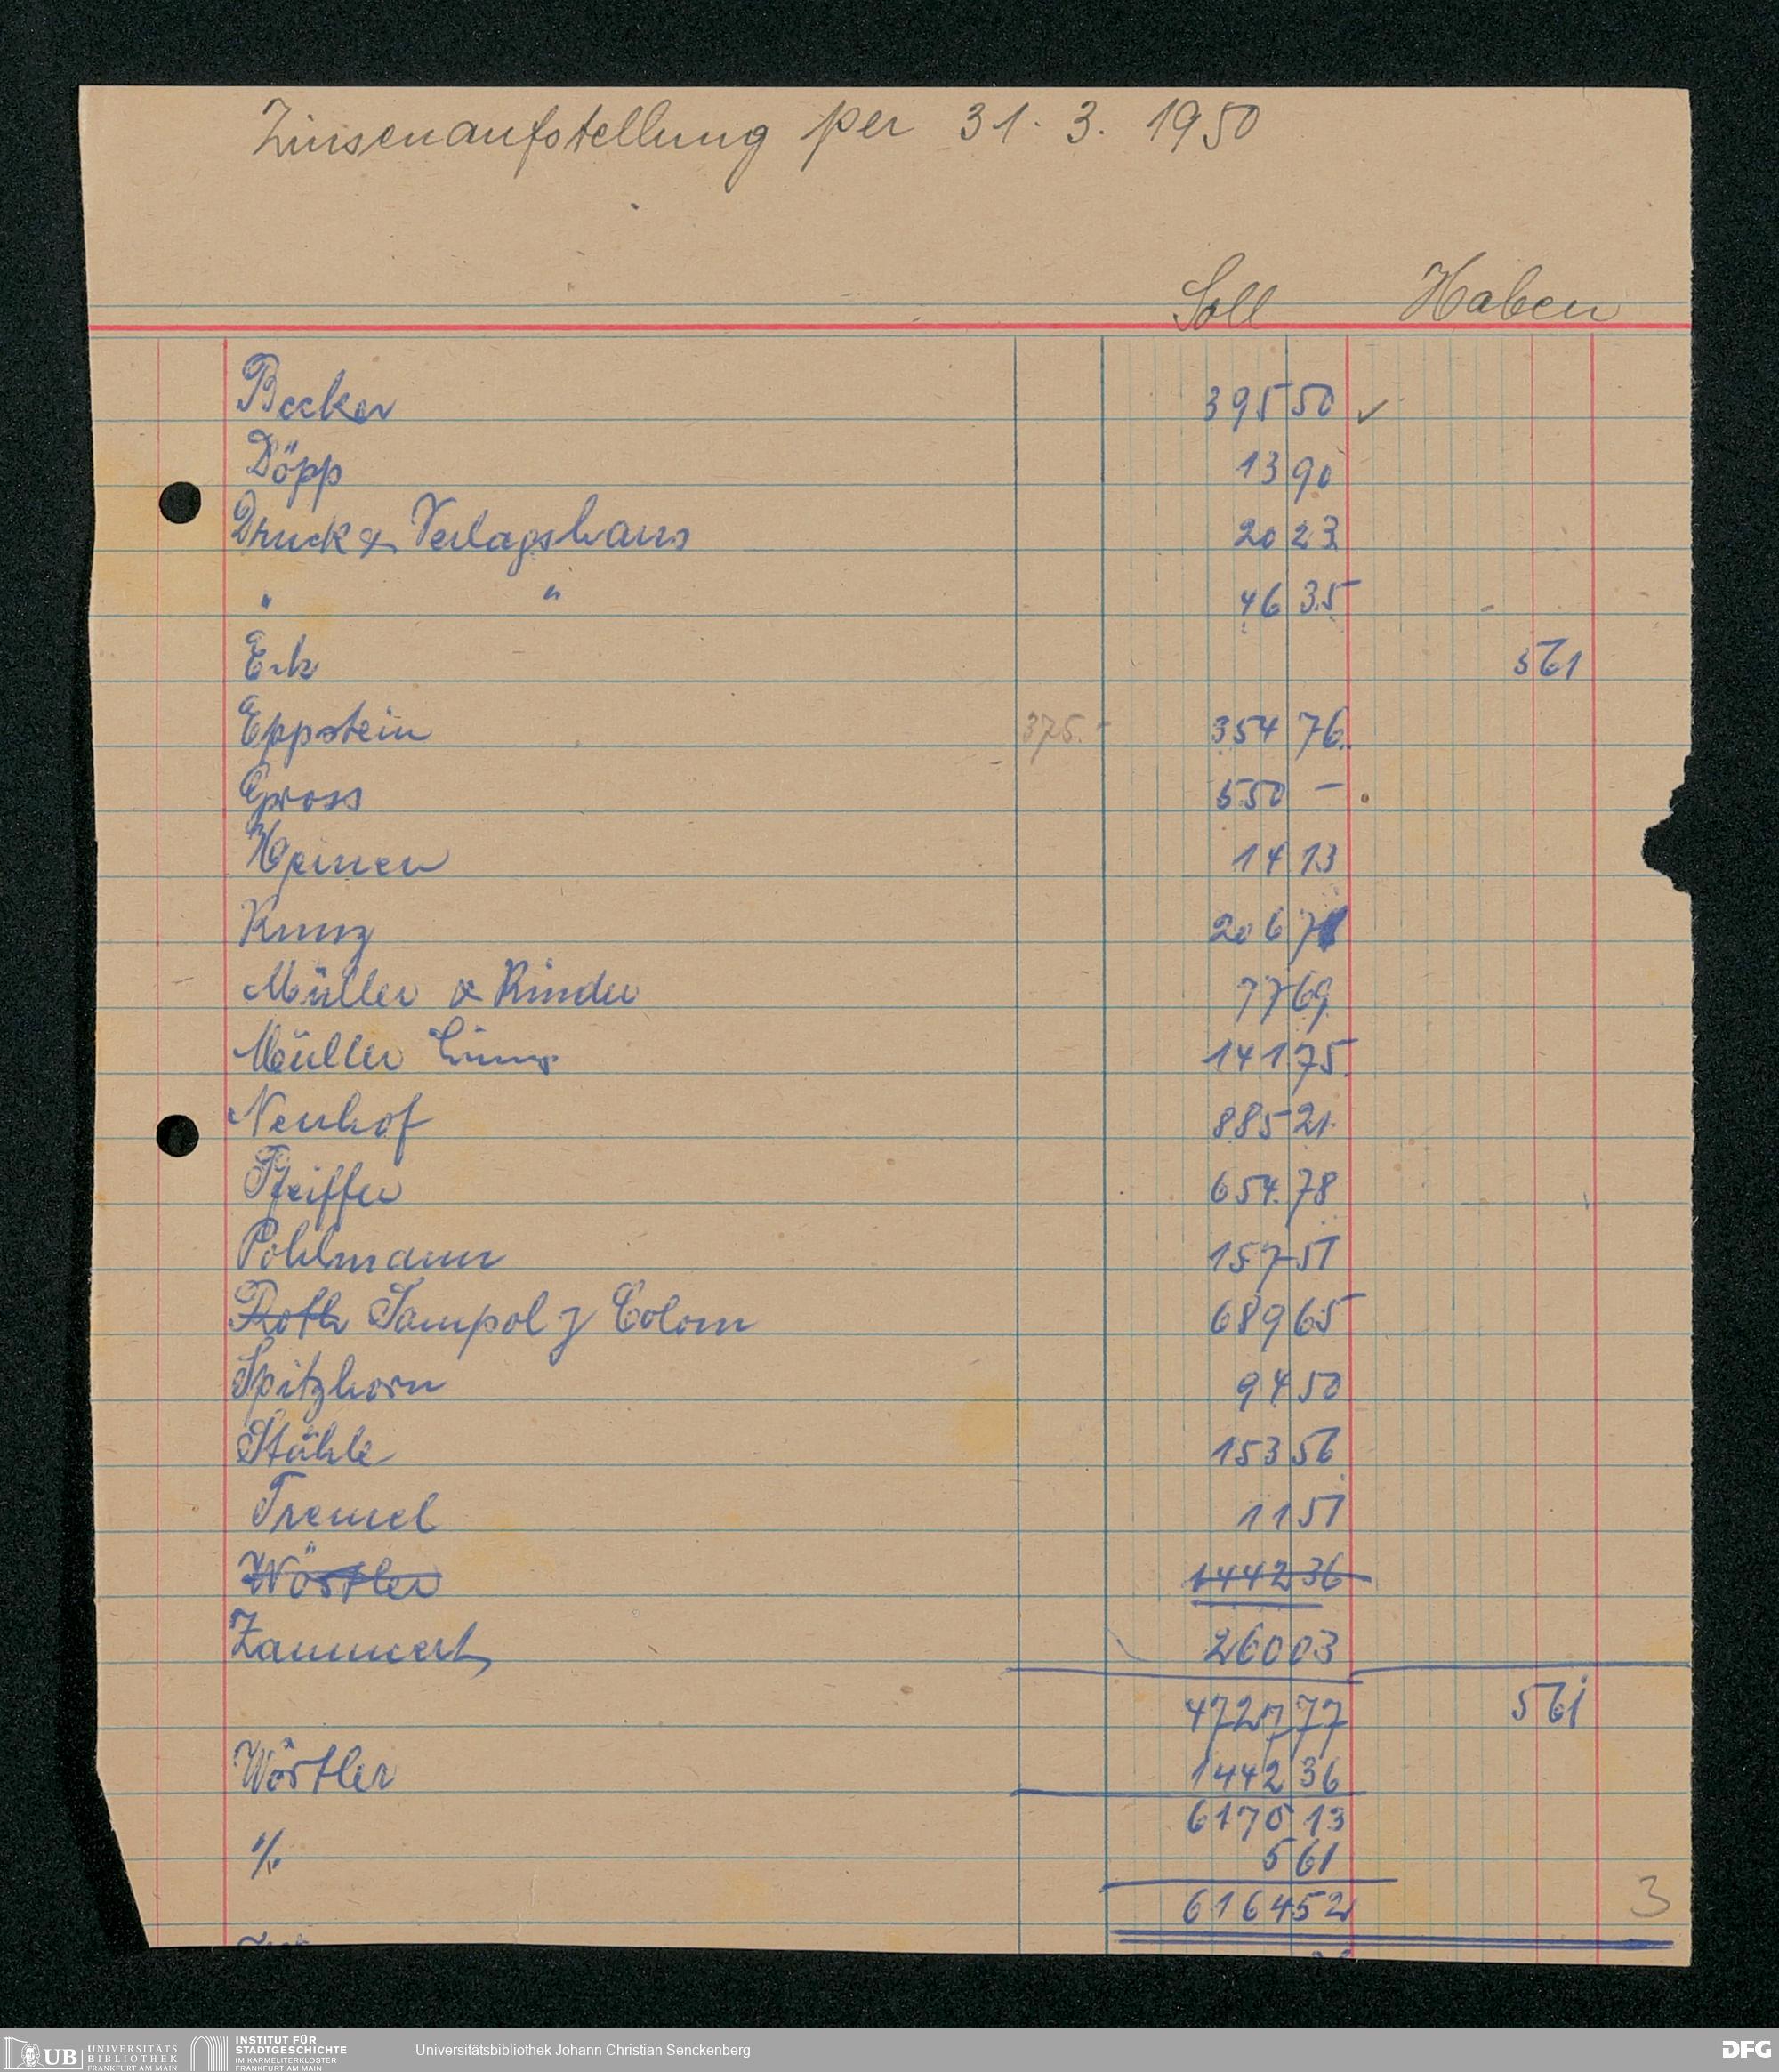 Zinsenaufstellung per 31. 3. 1950
Soll Haben
Becker 395 50 ✓
Döpp 13 90
Druck & Verlagshaus 20 23
" " 46 35
Erk 5 61
Eppstein 375.- 354 76
Gross 550 -
Heinen 14 13
Kunz 206 71
Müller & Rinder 77 69
Müller 141 75
Neuhof 885 21
Pfeiffer 654 78
Pohlmann 157 51
Roth Sampol y Colom 689 65
Spitzhorn 94 50
Stähle 153 56
Tremel 11 51
Wörtler 1442 36
Zammert 260 03
4727 77 5 61
Wörtler 1442 36
6170 13
%. 5 61
6164 52
3
UB UNIVERSITÄTS BIBLIOTHEK FRANKFURT AM MAIN
INSTITUT FÜR STADTGESCHICHTE IM KARMELITERKLOSTER FRANKFURT AM MAIN
Universitätsbibliothek Johann Christian Senckenberg
DFG